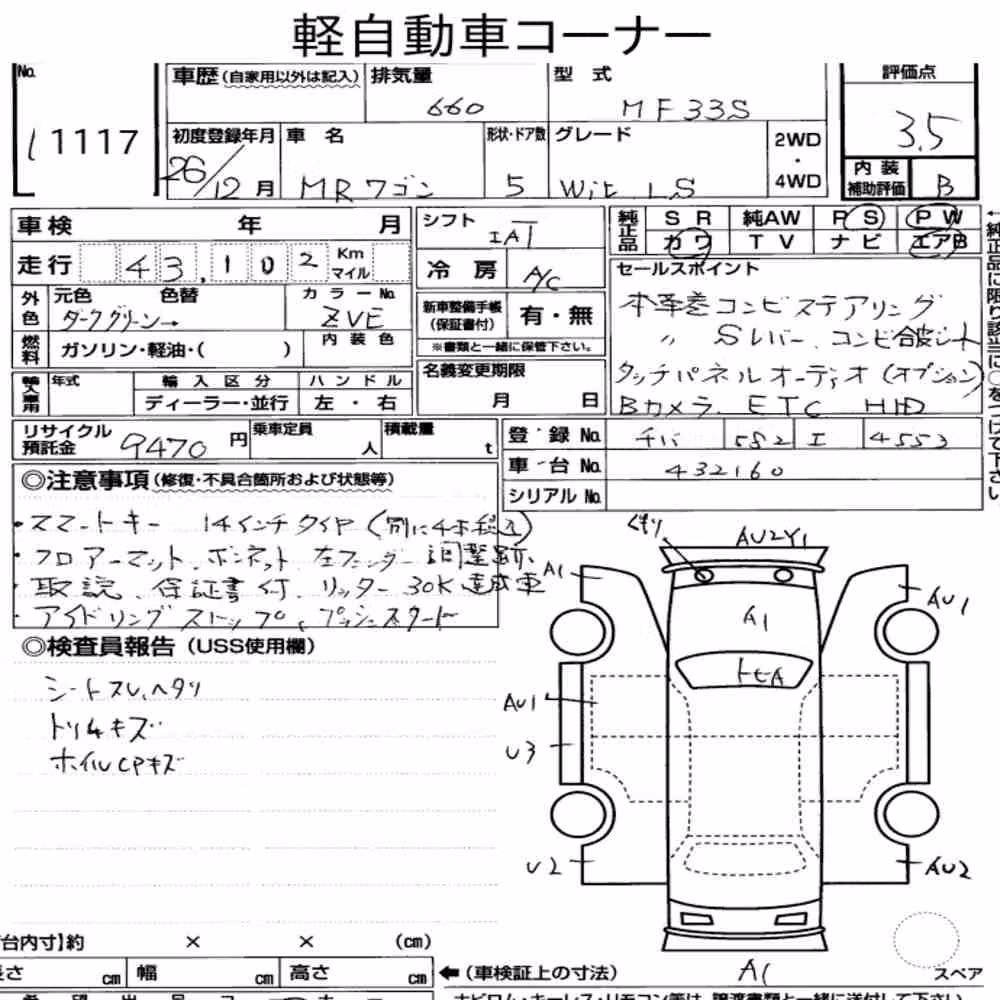 軽自動車コーナー
No.
11117
車歴(自家用以外は記入)
排気量
660
型 式
MF33S
評価点
3.5
初度登録年月
26/12月
車 名
MRワゴン
形状・ドア数
5
グレード
Wit LS
2WD
・
4WD
内 装
補助評価
B
車検 年 月
シフト
IAT
純正品
SR 純AW PS PW
カワ TV ナビ エアB
走行 43,102 Km
マイル
冷 房
A/C
セールスポイント
本革巻コンビステアリング
〃 Sレバー、コンビ合皮シート
タッチパネルオーディオ(オプション)
Bカメラ、ETC HID
外色
元色 色替
ダークグリーン→
カラーNo.
ZVE
新車整備手帳
(保証書付)
有・無
※書類と一緒に保管下さい。
燃料
ガソリン・軽油・( )
内 装 色
名義変更期限
月 日
輸入車用
年式
輸 入 区 分
ハ ン ド ル
ディーラー・並行
左 ・ 右
リサイクル
預託金
9470 円
乗車定員
人
積載量
t
登 録 No.
チバ 582 I 4553
車 台 No.
432160
シリアル No.
←純正品に限り該当に○をつけて下さい。
◎注意事項(修復・不具合箇所および状態等)
・スマートキー 14インチタイヤ(別に4本積込)
・フロアーマット、ボンネット 左フェンダー調整跡、
・取説、保証書付、リッター30K達成車
・アイドリングストップ、プッシュスタート
◎検査員報告(USS使用欄)
シートスレ、ヘタリ
トリムキズ
ホイルCPキズ
くもり
AU2Y1
A1
AU1
A1
トヒA
AU1
U3
U2
AU2
A1
スペア
台内寸】約 × × (cm)
長さ cm 幅 cm 高さ cm
←(車検証上の寸法)